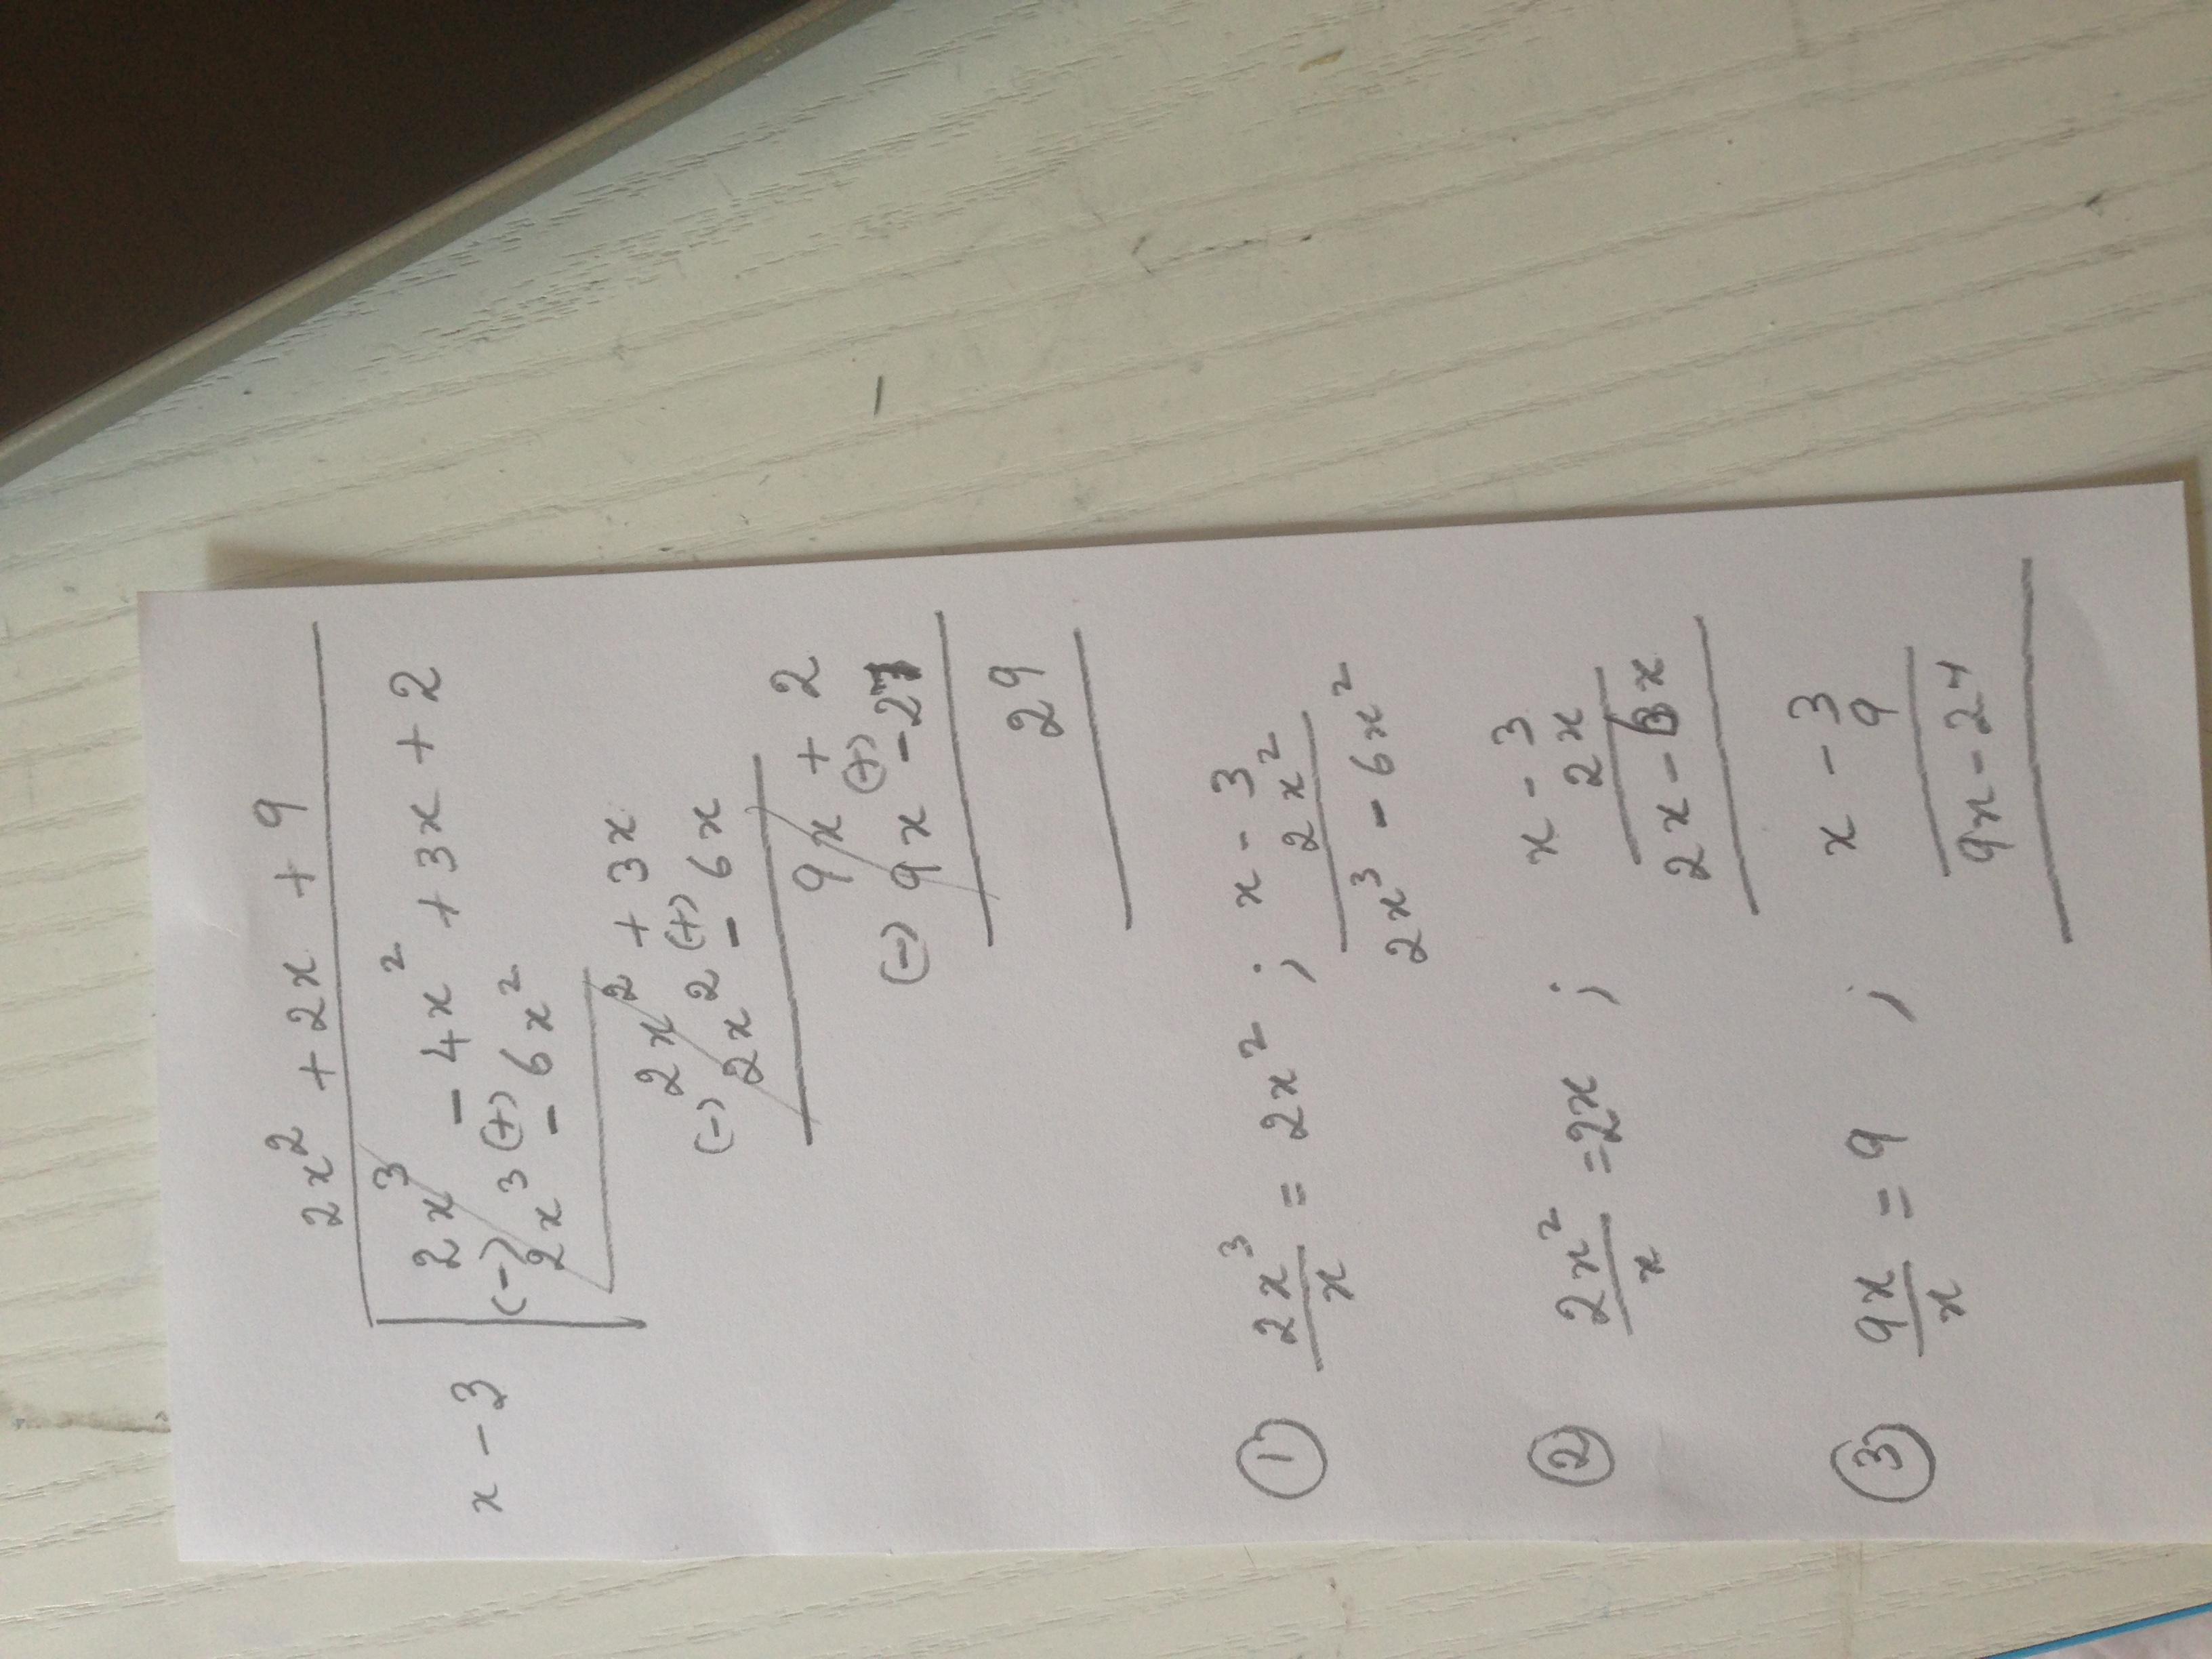 2x² + 2x + 9
x - 3 2x³ - 4x² + 3x + 2
(-) (+)
2x³ - 6x²
2x² + 3x
(-) (+)
2x² - 6x
9x + 2
(-) (+)
9x - 27
29
① 2x³/x = 2x² ; x - 3
2x²
2x³ - 6x²
② 2x²/x = 2x ; x - 3
2x
2x - 6x
③ 9x/x = 9 ; x - 3
9
9x - 27